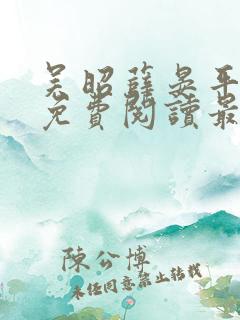 吴昭薛晏平
免費閱讀最
陳公博
未经同意禁止转载